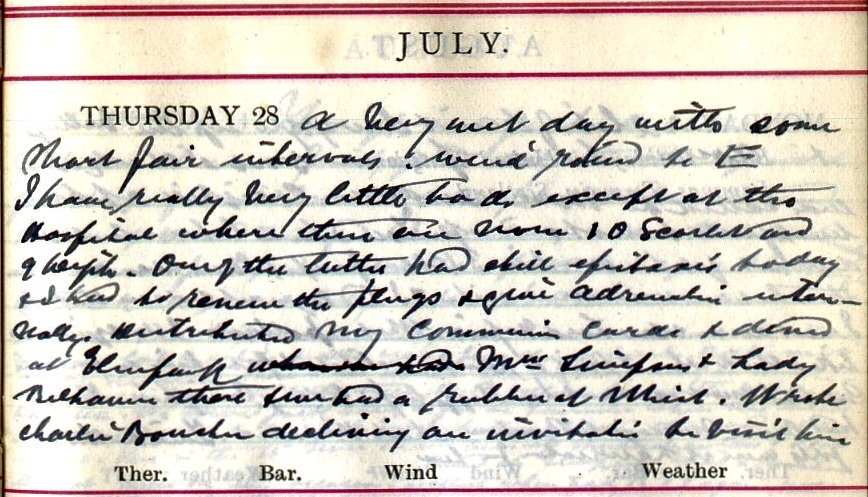 JULY.
THURSDAY 28 A very wet day with some
short fair intervals. wind round to E
I have really very little to do except at the
Hospital where there are now 10 Scarlet and
9 Diph. One of the latter had still epistaxis today
& I had to renew the plugs & give adrenalin inter-
nally. Distributed my Communion Cards & dined
at where we had Mrs Simpson & Lady
there & we had a rubber of Whist. Wrote
Charlie declining an invitation to visit him
Ther. Bar. Wind Weather